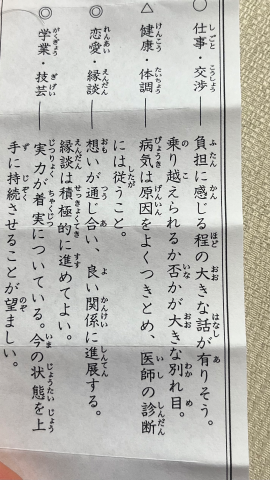 ○ 仕事・交渉―― 負担に感じる程の大きな話が有りそう。
乗り越えられるか否かが大きな別れ目。
△ 健康・体調―― 病気は原因をよくつきとめ、医師の診断
には従うこと。
◎ 恋愛・縁談―― 想いが通じ合い、良い関係に進展する。
縁談は積極的に進めてよい。
◎ 学業・技芸―― 実力が着実についている。今の状態を上
手に持続させることが望ましい。